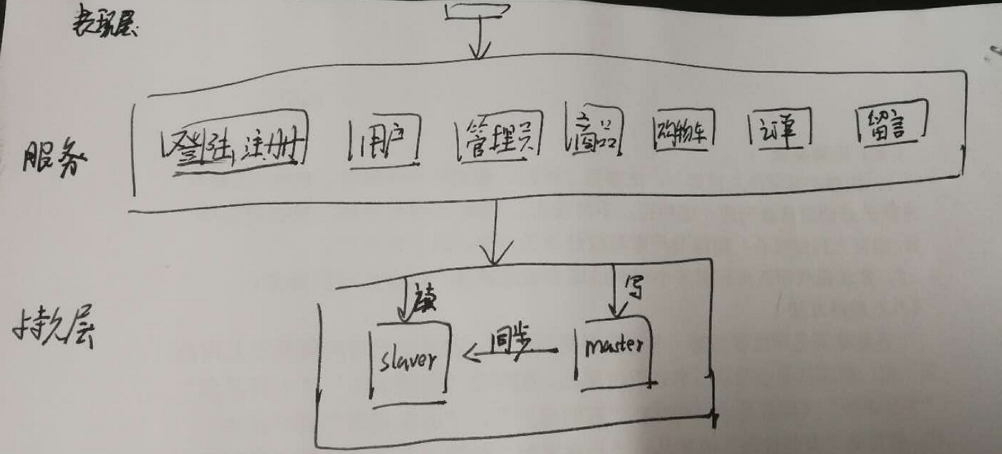 表现层
登陆,注册 用户 管理员 商品 购物车 订单 留言
服务
读 写
持久层
slaver 同步 master